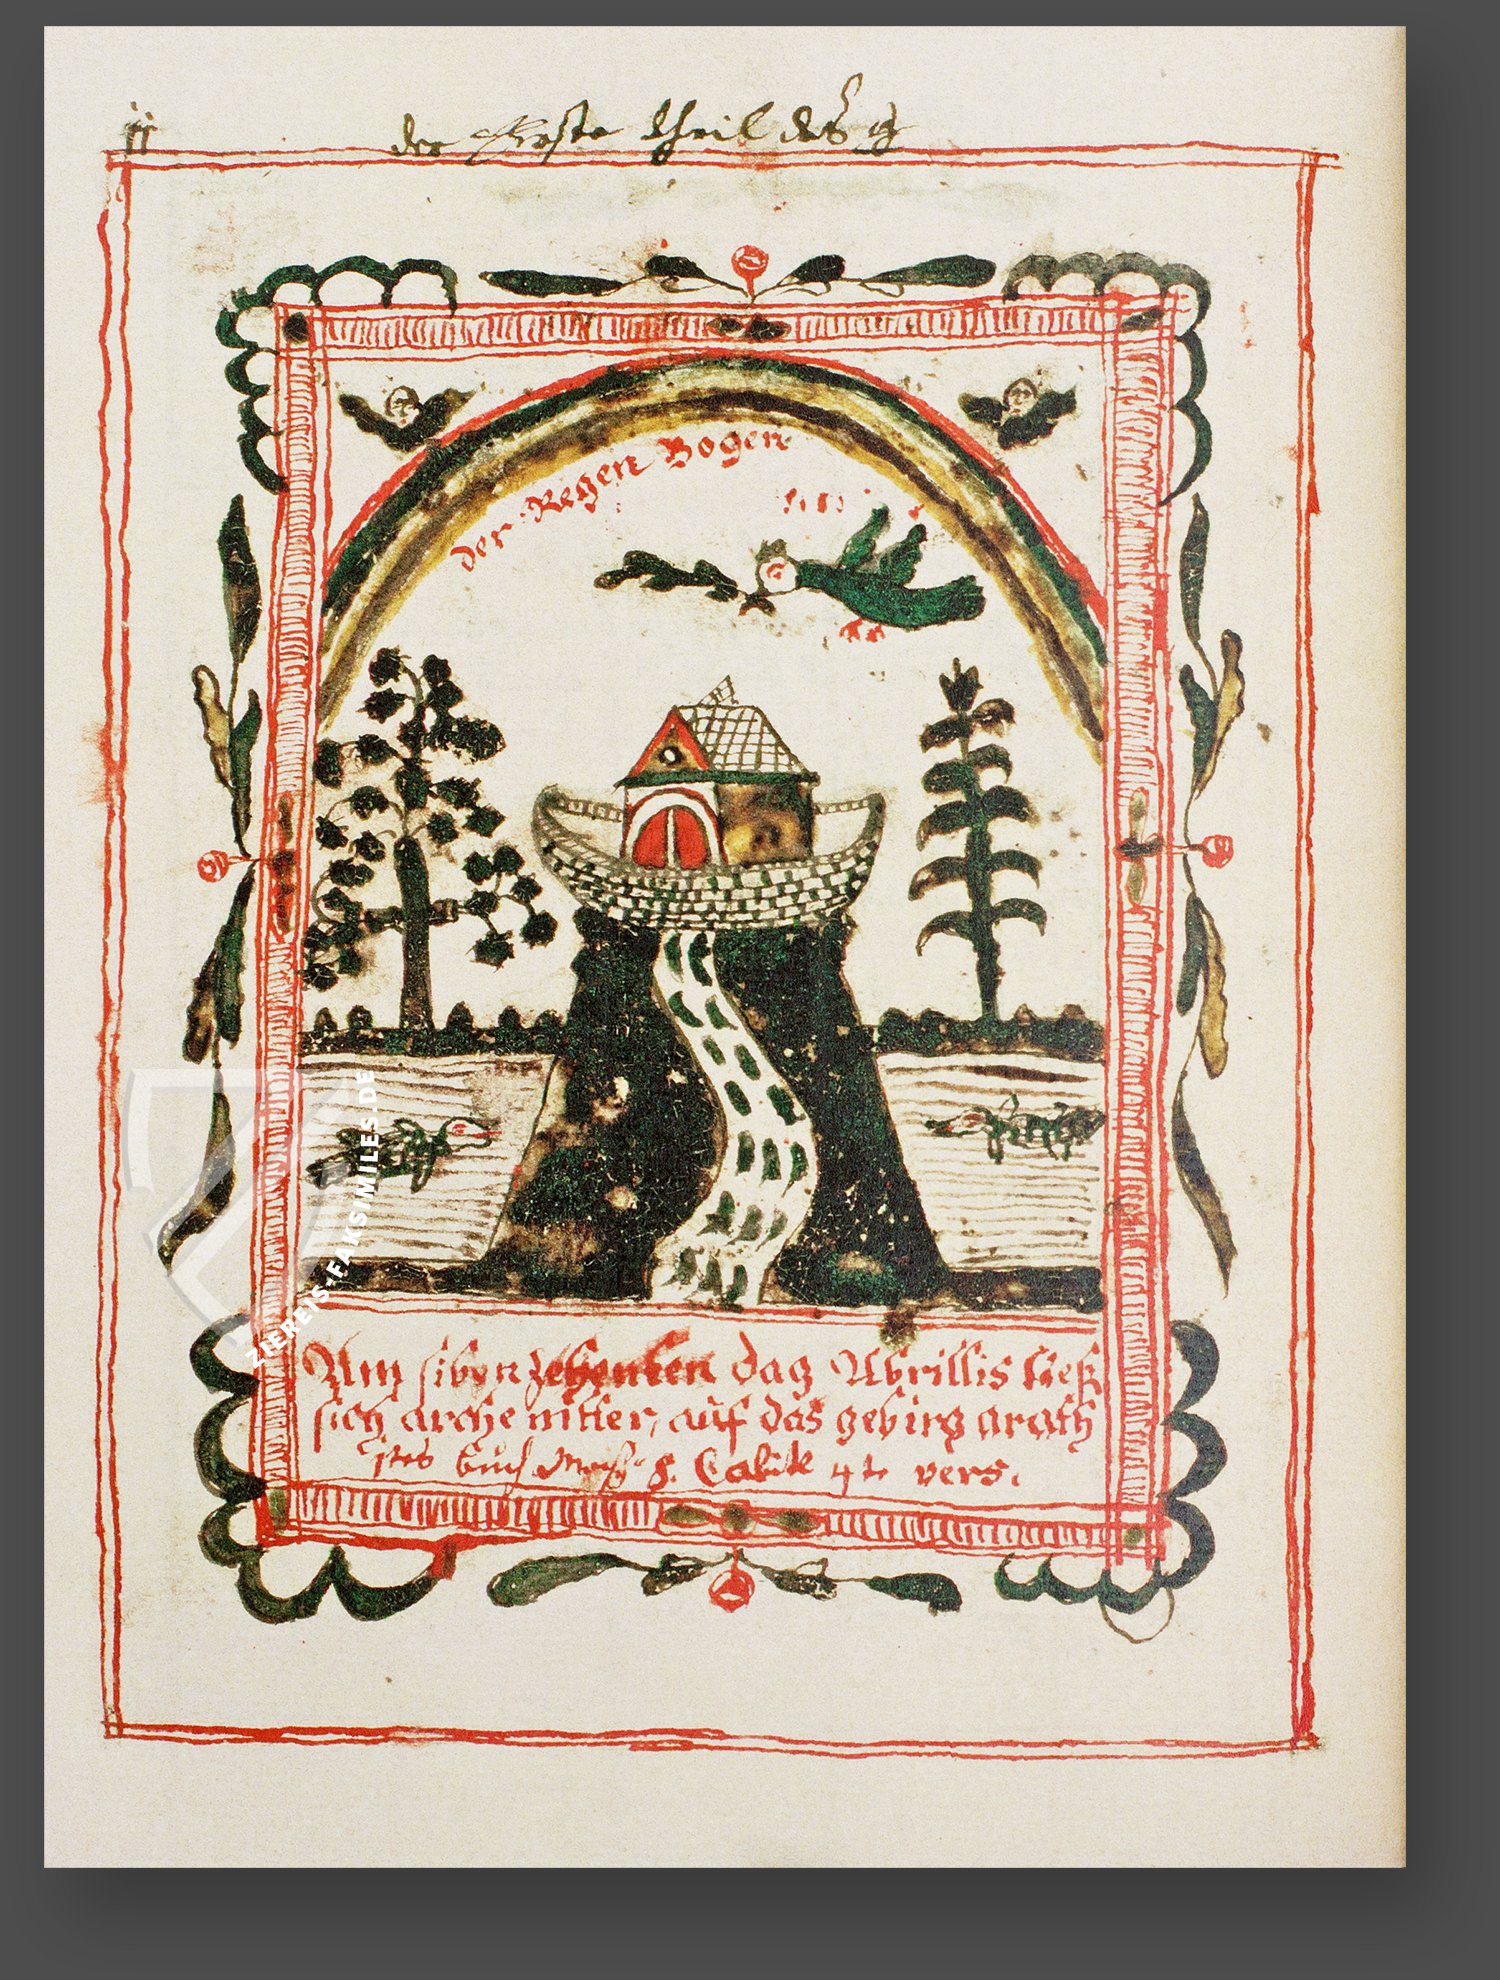 der Erste theil des
der Regen Bogen
Am sibenzehenten dag Abrillis ließ
sich arche nitter, auf das gebirg arath
1stes buch Mosy 8. Cabitl 4te vers.
ZIEREIS-FAKSIMILES.DE